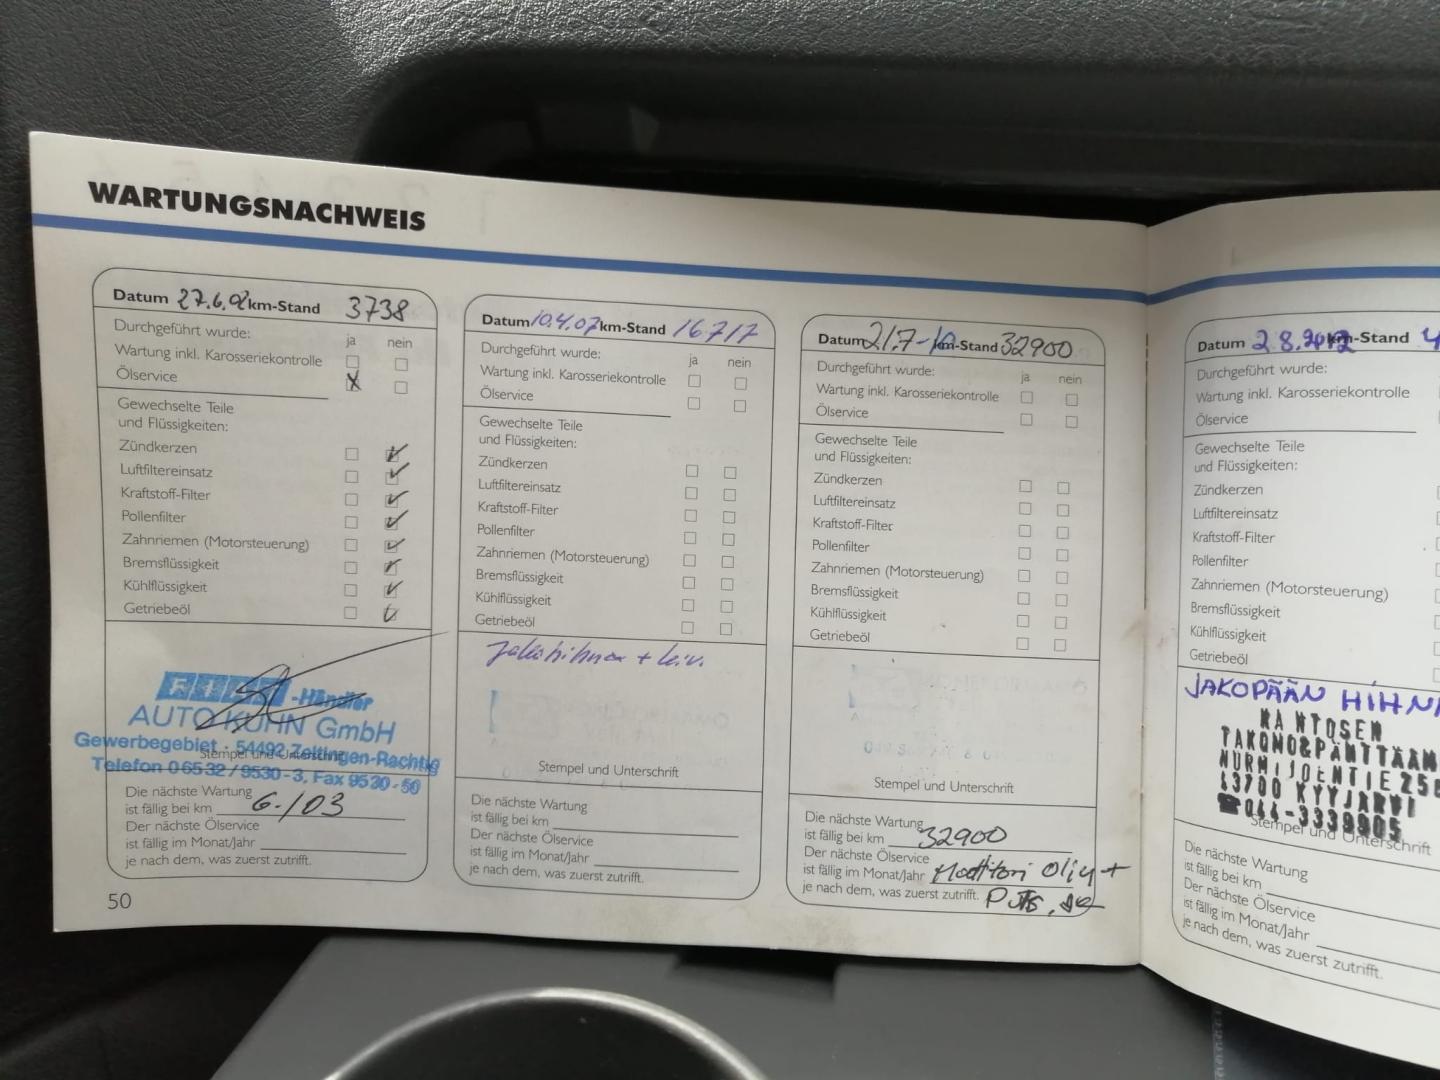 WARTUNGSNACHWEIS
Datum 27.6.02 km-Stand 3738
Durchgeführt wurde: ja nein
Wartung inkl. Karosseriekontrolle
Ölservice X
Gewechselte Teile
und Flüssigkeiten:
Zündkerzen
Luftfiltereinsatz
Kraftstoff-Filter
Pollenfilter
Zahnriemen (Motorsteuerung)
Bremsflüssigkeit
Kühlflüssigkeit
Getriebeöl
FIAT -Händler
AUTO KÜHN GmbH
Gewerbegebiet · 54492 Zeltingen-Rachtig
Stempel und Unterschrift
Telefon 06532/9530-3, Fax 9530-50
Die nächste Wartung
ist fällig bei km 6./03
Der nächste Ölservice
ist fällig im Monat/Jahr
je nach dem, was zuerst zutrifft.
50
Datum 10.4.07 km-Stand 16717
Durchgeführt wurde: ja nein
Wartung inkl. Karosseriekontrolle
Ölservice
Gewechselte Teile
und Flüssigkeiten:
Zündkerzen
Luftfiltereinsatz
Kraftstoff-Filter
Pollenfilter
Zahnriemen (Motorsteuerung)
Bremsflüssigkeit
Kühlflüssigkeit
Getriebeöl
Jakohihna +
Stempel und Unterschrift
Die nächste Wartung
ist fällig bei km
Der nächste Ölservice
ist fällig im Monat/Jahr
je nach dem, was zuerst zutrifft.
Datum 21.7-10 km-Stand 32900
Durchgeführt wurde: ja nein
Wartung inkl. Karosseriekontrolle
Ölservice
Gewechselte Teile
und Flüssigkeiten:
Zündkerzen
Luftfiltereinsatz
Kraftstoff-Filter
Pollenfilter
Zahnriemen (Motorsteuerung)
Bremsflüssigkeit
Kühlflüssigkeit
Getriebeöl
Stempel und Unterschrift
Die nächste Wartung
ist fällig bei km 32900
Der nächste Ölservice
ist fällig im Monat/Jahr Moottori Öljy +
je nach dem, was zuerst zutrifft.
Datum 2.8.2012 km-Stand 4
Durchgeführt wurde:
Wartung inkl. Karosseriekontrolle
Ölservice
Gewechselte Teile
und Flüssigkeiten:
Zündkerzen
Luftfiltereinsatz
Kraftstoff-Filter
Pollenfilter
Zahnriemen (Motorsteuerung)
Bremsflüssigkeit
Kühlflüssigkeit
Getriebeöl
JAKOPÄÄN HIHN
KANTOSEN
TAKOMO&PÄNTTÄÄM
NURMIJOENTIE 258
43700 KYYJÄRVI
☎044-3339905
Stempel und Unterschrift
Die nächste Wartung
ist fällig bei km
Der nächste Ölservice
ist fällig im Monat/Jahr
je nach dem, was zuerst zutrifft.